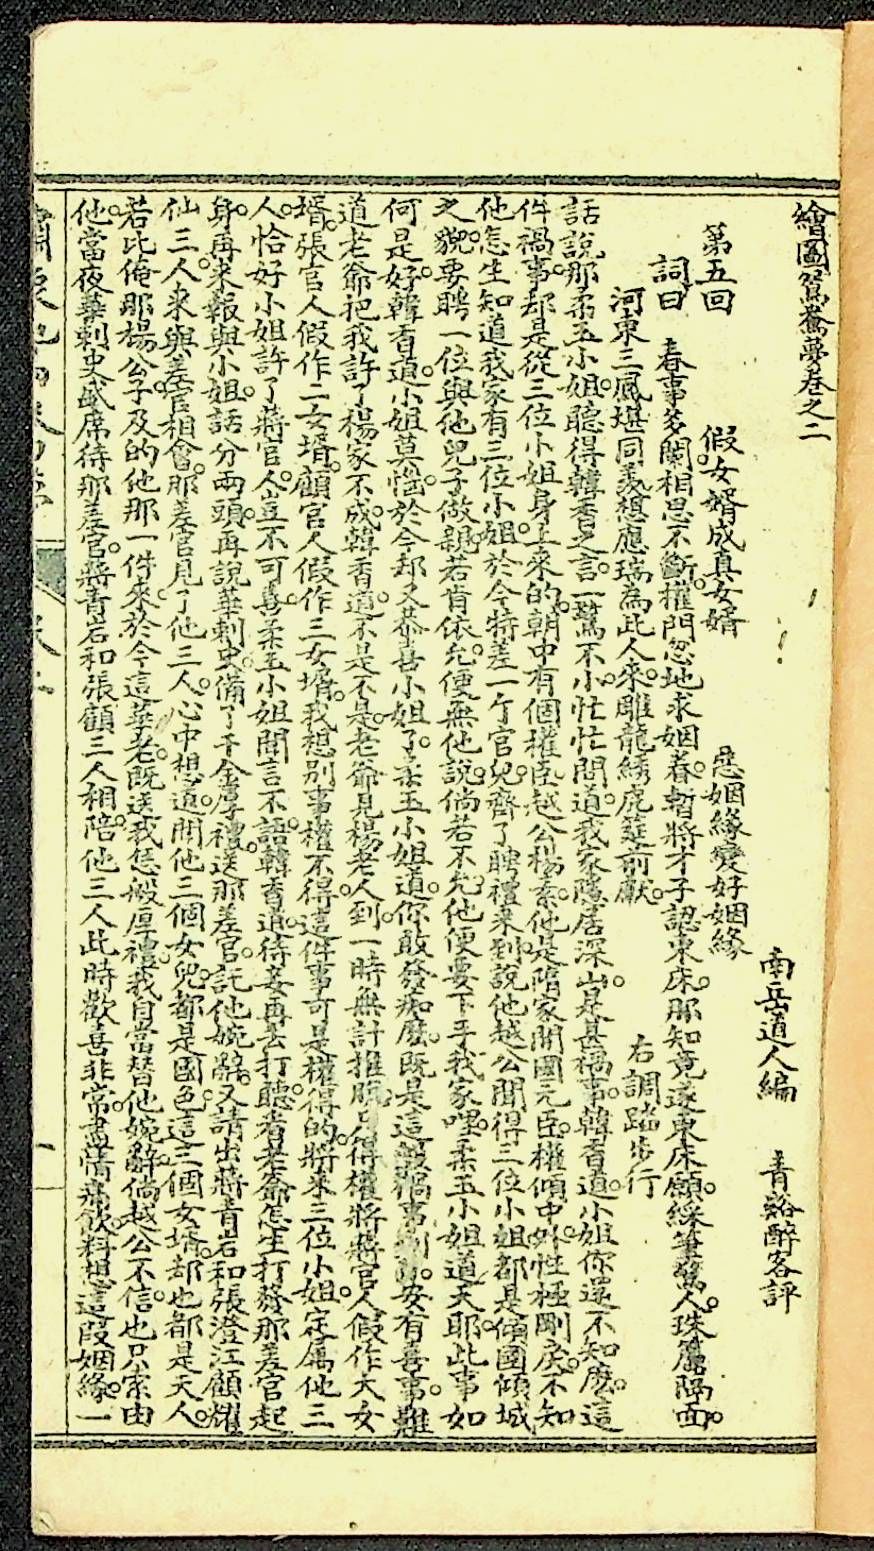 繪圖鴛鴦夢卷之二
南岳道人編　青谿醉客評
第五回　假女婿成真女婿　惡姻緣變好姻緣
詞曰　春事多闌相思不斷。權門忽地求姻眷。暫將才子認東床。那知竟遂東床願。綵筆驚人。珠簾隔面。
河東三鳳堪同羨。想應瑞為此人來。雕龍綉虎筵前獻。　右調踏步行
話說那柔玉小姐。聽得韓香之言。一驚不小。忙忙問道。我家隱居深山。是甚禍事。韓香道。小姐你還不知麼。這
件禍事。却是從三位小姐身上來的。朝中有個權臣越公楊素。他是隋家開國元臣。權傾中外。性極剛戾。不知
他怎生知道我家有三位小姐。於今特差一个官兒。齊了聘禮來到。說他越公聞得三位小姐都是傾國傾城
之貌。要聘一位與他兒子做親。若肯依允。便無他說。倘若不允。他便要下手我家哩。柔玉小姐道。天耶。此事如
何是好。韓香道。小姐莫惱。於今却又恭喜小姐了。柔玉小姐道。你敢發痴麼。既是這般禍事到 安有喜事。雖
道老爺把我許了楊家不成。韓香道。不是不是。老爺見楊老人到。一時無計推脫。只得權將蔣官人假作大女
婿。張官人假作二女壻。顧官人假作三女壻。我想別事權不得。這件事可是權得的。將來三位小姐。定屬他三
人。恰好小姐許了蔣官人。豈不可喜。柔玉小姐聞言不語。韓香道。待妾再去打聽。看老爺怎生打發那差官起
身。再來報與小姐。話分兩頭。再說華刺史。備了千金厚禮。送那差官。託他婉辭。又請出蔣青岩和張澄江顧耀
仙三人。來與差官相會。那差官見了他三人。心中想道。聞他三個女兒。都是國色。這三個女婿。却也都是天人。
若比俺那楊公子。及的他那一件來。於今這華老。既送我恁般厚禮。我自當替他婉辭。倘越公不信。也只索由
他。當夜華刺史盛席待那差官。蔣青岩和張顧三人相陪。他三人此時歡喜非常。盡情痛飲。料想這段姻緣。一